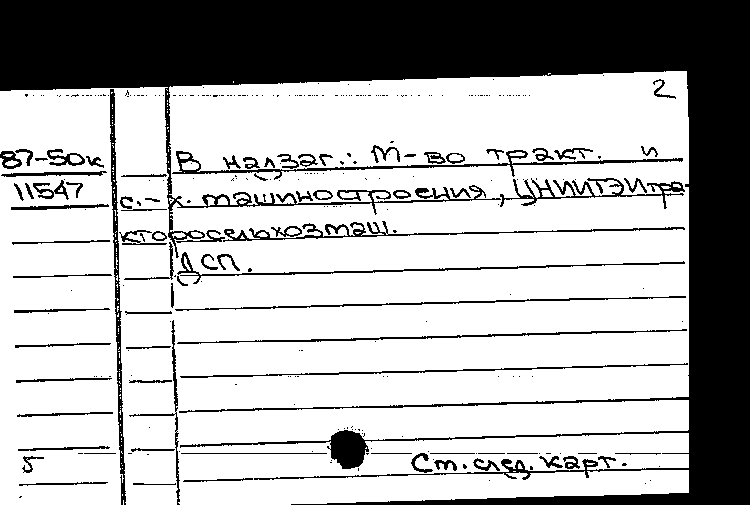 2
87-50к В надзаг.: М-во тракт. и
11547 с.-х. машиностроения, ЦНИИТЭИтра-
кторосельхозмаш.
ДСП.
5 См. след. карт.